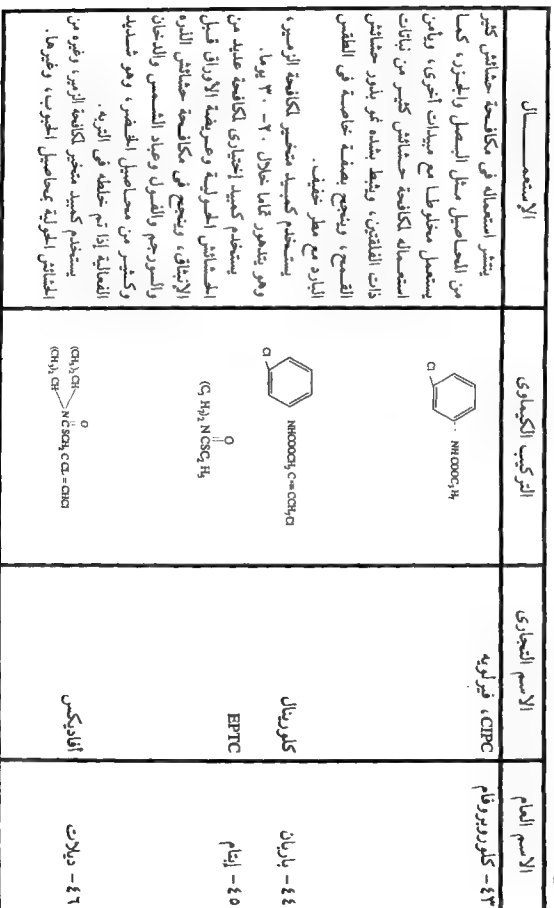 الاسم العام
الاسم التجارى
التركيب الكيماوى
الإستعمـــــــال
٤٣ - كلوروبروفام
CIPC ، فيرلويه
Cl
NH COOC₃ H₇
ينتشر استعماله فى مكافحة حشائش كثير
من المحاصيل مثل البصل والجزر، كما
يستعمل مخلوطا مع مبيدات أخرى، وأمن
استعماله لمكافحة حشائش كثير من نباتات
ذات الفلقتين، ويثبط بشده نمو بذور حشائش
القمح، وينجح بصفة خاصة فى الطقس
البارد مع مطر خفيف.
٤٤ - باربان
كلورينال
Cl
NHCOOCH₂ C ≡ CCH₂Cl
يستخدم كمبيد متخير لمكافحة الزمير،
وهو يتدهور تماما خلال ٢٠ - ٣٠ يوما.
٤٥ - إبتام
EPTC
O
(C₃ H₇)₂ N CSC₂ H₅
يستخدم كمبيد إختيارى لمكافحة عديد من
الحشائش الحولية وعريضة الأوراق قبل
الإنبثاق، وينجح فى مكافحة حشائش الذره
والسورجم والفول وعباد الشمس والدخان
وكثير من محاصيل الخضر، وهو شديد
الفعالية إذا تم خلطه فى التربه.
٤٦ - ديلات
أفاديكس
(CH₃)₂ CH
(CH₃)₂ CH
O
N C SCH₂ C CL = CHCl
يستخدم كمبيد متخير لمكافحة الزمير، وغيره من
الحشائش الحولية بمحاصيل الحبوب، وغيرها.